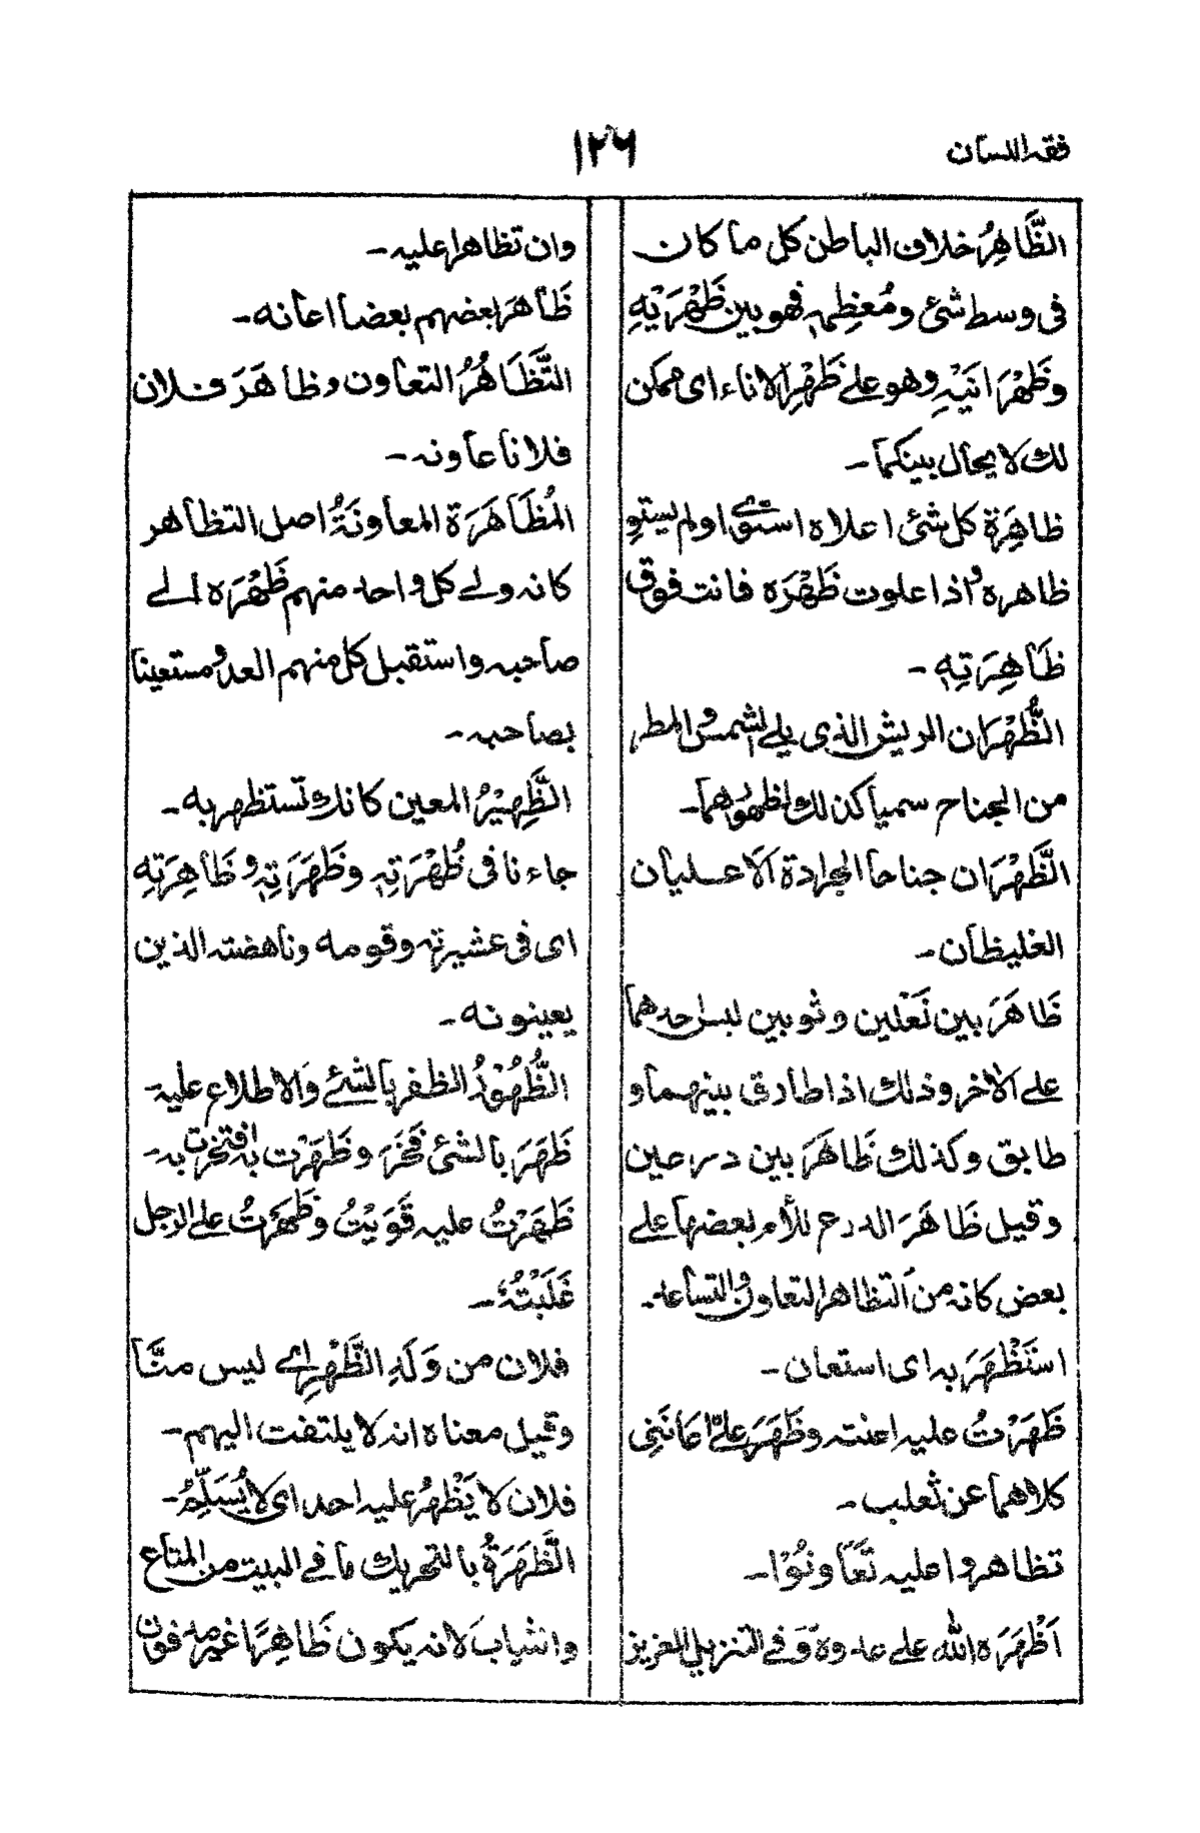 فقه اللسان
١٢٦
الظَّاهِرُ خلاف الباطن كل ما كان
فى وسط شئ ومُعظِمہ فهو بين ظَهْرَيْهِ
وظَهْرَانَيْہِ وهو على ظَهْرِ الاناء اى ممكن
لك لا يحال بينكما ـ
ظاهِرَة كل شئ اعلاه استوى اولم يستوِ
ظاهره واذا علوت ظَهْرَه فانت فوق
ظَاهِرَتِهٖ ـ
الظُّهْرَان الريش الذى يلى الشمس والمطر
من الجناح سميا كذلك لظهورهما ـ
الظَّهْرَان جناحا الجرادة الاعليان
الغليظان ـ
ظَاهَرَ بين نَعْلين و ثوبين لبس احدهما
على الاخر وذلك اذا طارق بينهما و
طابق وكذلك ظَاهَرَ بين درعين
وقيل ظَاهَرَ الدرع للأم بعضها على
بعض كانہ من التظاهر التعاون والتساعد ـ
استَظْهَرَ بہ اى استعان ـ
ظَهَرْتُ عليہ اعنتہ وظَهَرَ علىّ اعانَنِى
كلاهما عن ثعلب ـ
تظاهروا عليہ تَعَاونُوْا ـ
اَظْهَرَه الله على عدوه وفى التنزيل العزيز
وان تظاهرا عليہ ـ
ظَاهَرَ بعضهم بعضا اعانه ـ
التَّظَاهُرُ التعاون وظاهَرَ فلان
فلانا عاونہ ـ
المُظَاهَرَة المعاونَۃُ اصل التظاهر
كانہ ولى كل واحد منهم ظَهْرَه الى
صاحبہ واستقبل كل منهم العدو مستعينا
بصاحبہ ـ
الظَّهِيْرُ المعين كانك تستظهر به ـ
جاءنا فى ظُهْرَتِہٖ وظَهَرَتِہٖ وظَاهِرَتِهِ
اى فى عشيرتہ وقومه وناهضتہ الذين
يعينونه ـ
الظُّهُوْرُ الظفر بالشئ والاطلاع عليہ ـ
ظَهَرَ بالشئ فَخَرَ وظَهَرْت بہ افتخرت بہ ـ
ظَهَرْتُ عليہ قَوَيْتُ وظَهَرْتُ على الرجل
غَلَبْتُہُ ـ
فلان من وَلَدِ الظَّهْرِ اى ليس منَّا
وقيل معناه انہ لا يلتفت اليهم ـ
فلان لا يَظْهرُ عليہ احد اى لا يُسَلِّمُ ـ
الظَّهَرَةُ بالتحريك ما فى البيت من المتاع
وانثياب لانہ يكون ظَاهِرًا غير مدفون